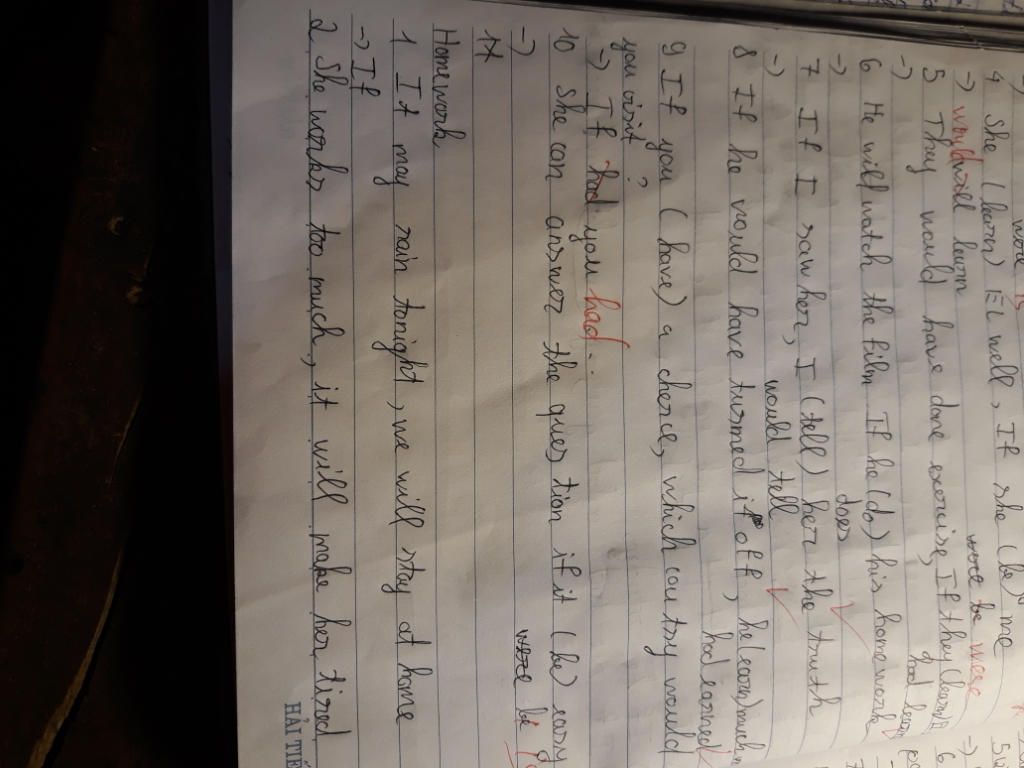 4 She (learn) EL well, If she (be) me
were to were
-> would will learn
5 They would have done exercise, If they (learn)
-> had learn
6 He will watch the film If he (do) his homework
-> does
7 If I saw her, I (tell) her the truth
-> would tell
8 If he would have turned it off, he (earn) much
had earned
9 If you (have) a chance, which would
you visit?
-> If had you had
10 She can answer the question if it (be) easy
-> were be
17
Homework
1 It may rain tonight, we will stay at home
-> If
2 She works too much, it will make her tired
HẢI TIẾ